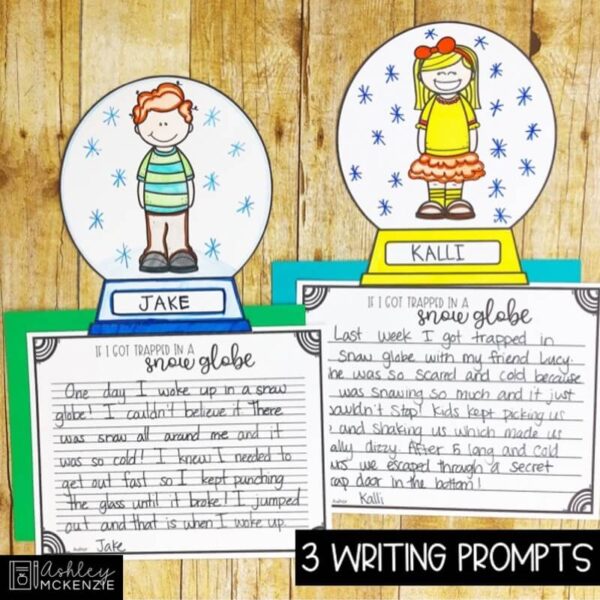 JAKE
IF I GOT TRAPPED IN A
snow globe
One day I woke up in a snow
globe! I couldn't believe it. There
was snow all around me and it
was so cold! I knew I needed to
get out fast so I kept punching
the glass until it broke! I jumped
out and that is when I woke up.
Author: Jake
KALLI
IF I GOT TRAPPED IN A
snow globe
Last week I got trapped in
snow globe with my friend Lucy.
he was so scared and cold because
was snowing so much and it just
ouldn't stop! kids kept picking us
and shaking us which made us
ally dizzy. After 5 long and cold
urs we escaped through a secret
rap door in the bottom!
Author: Kalli
3 WRITING PROMPTS
Ashley
MCKENZIE